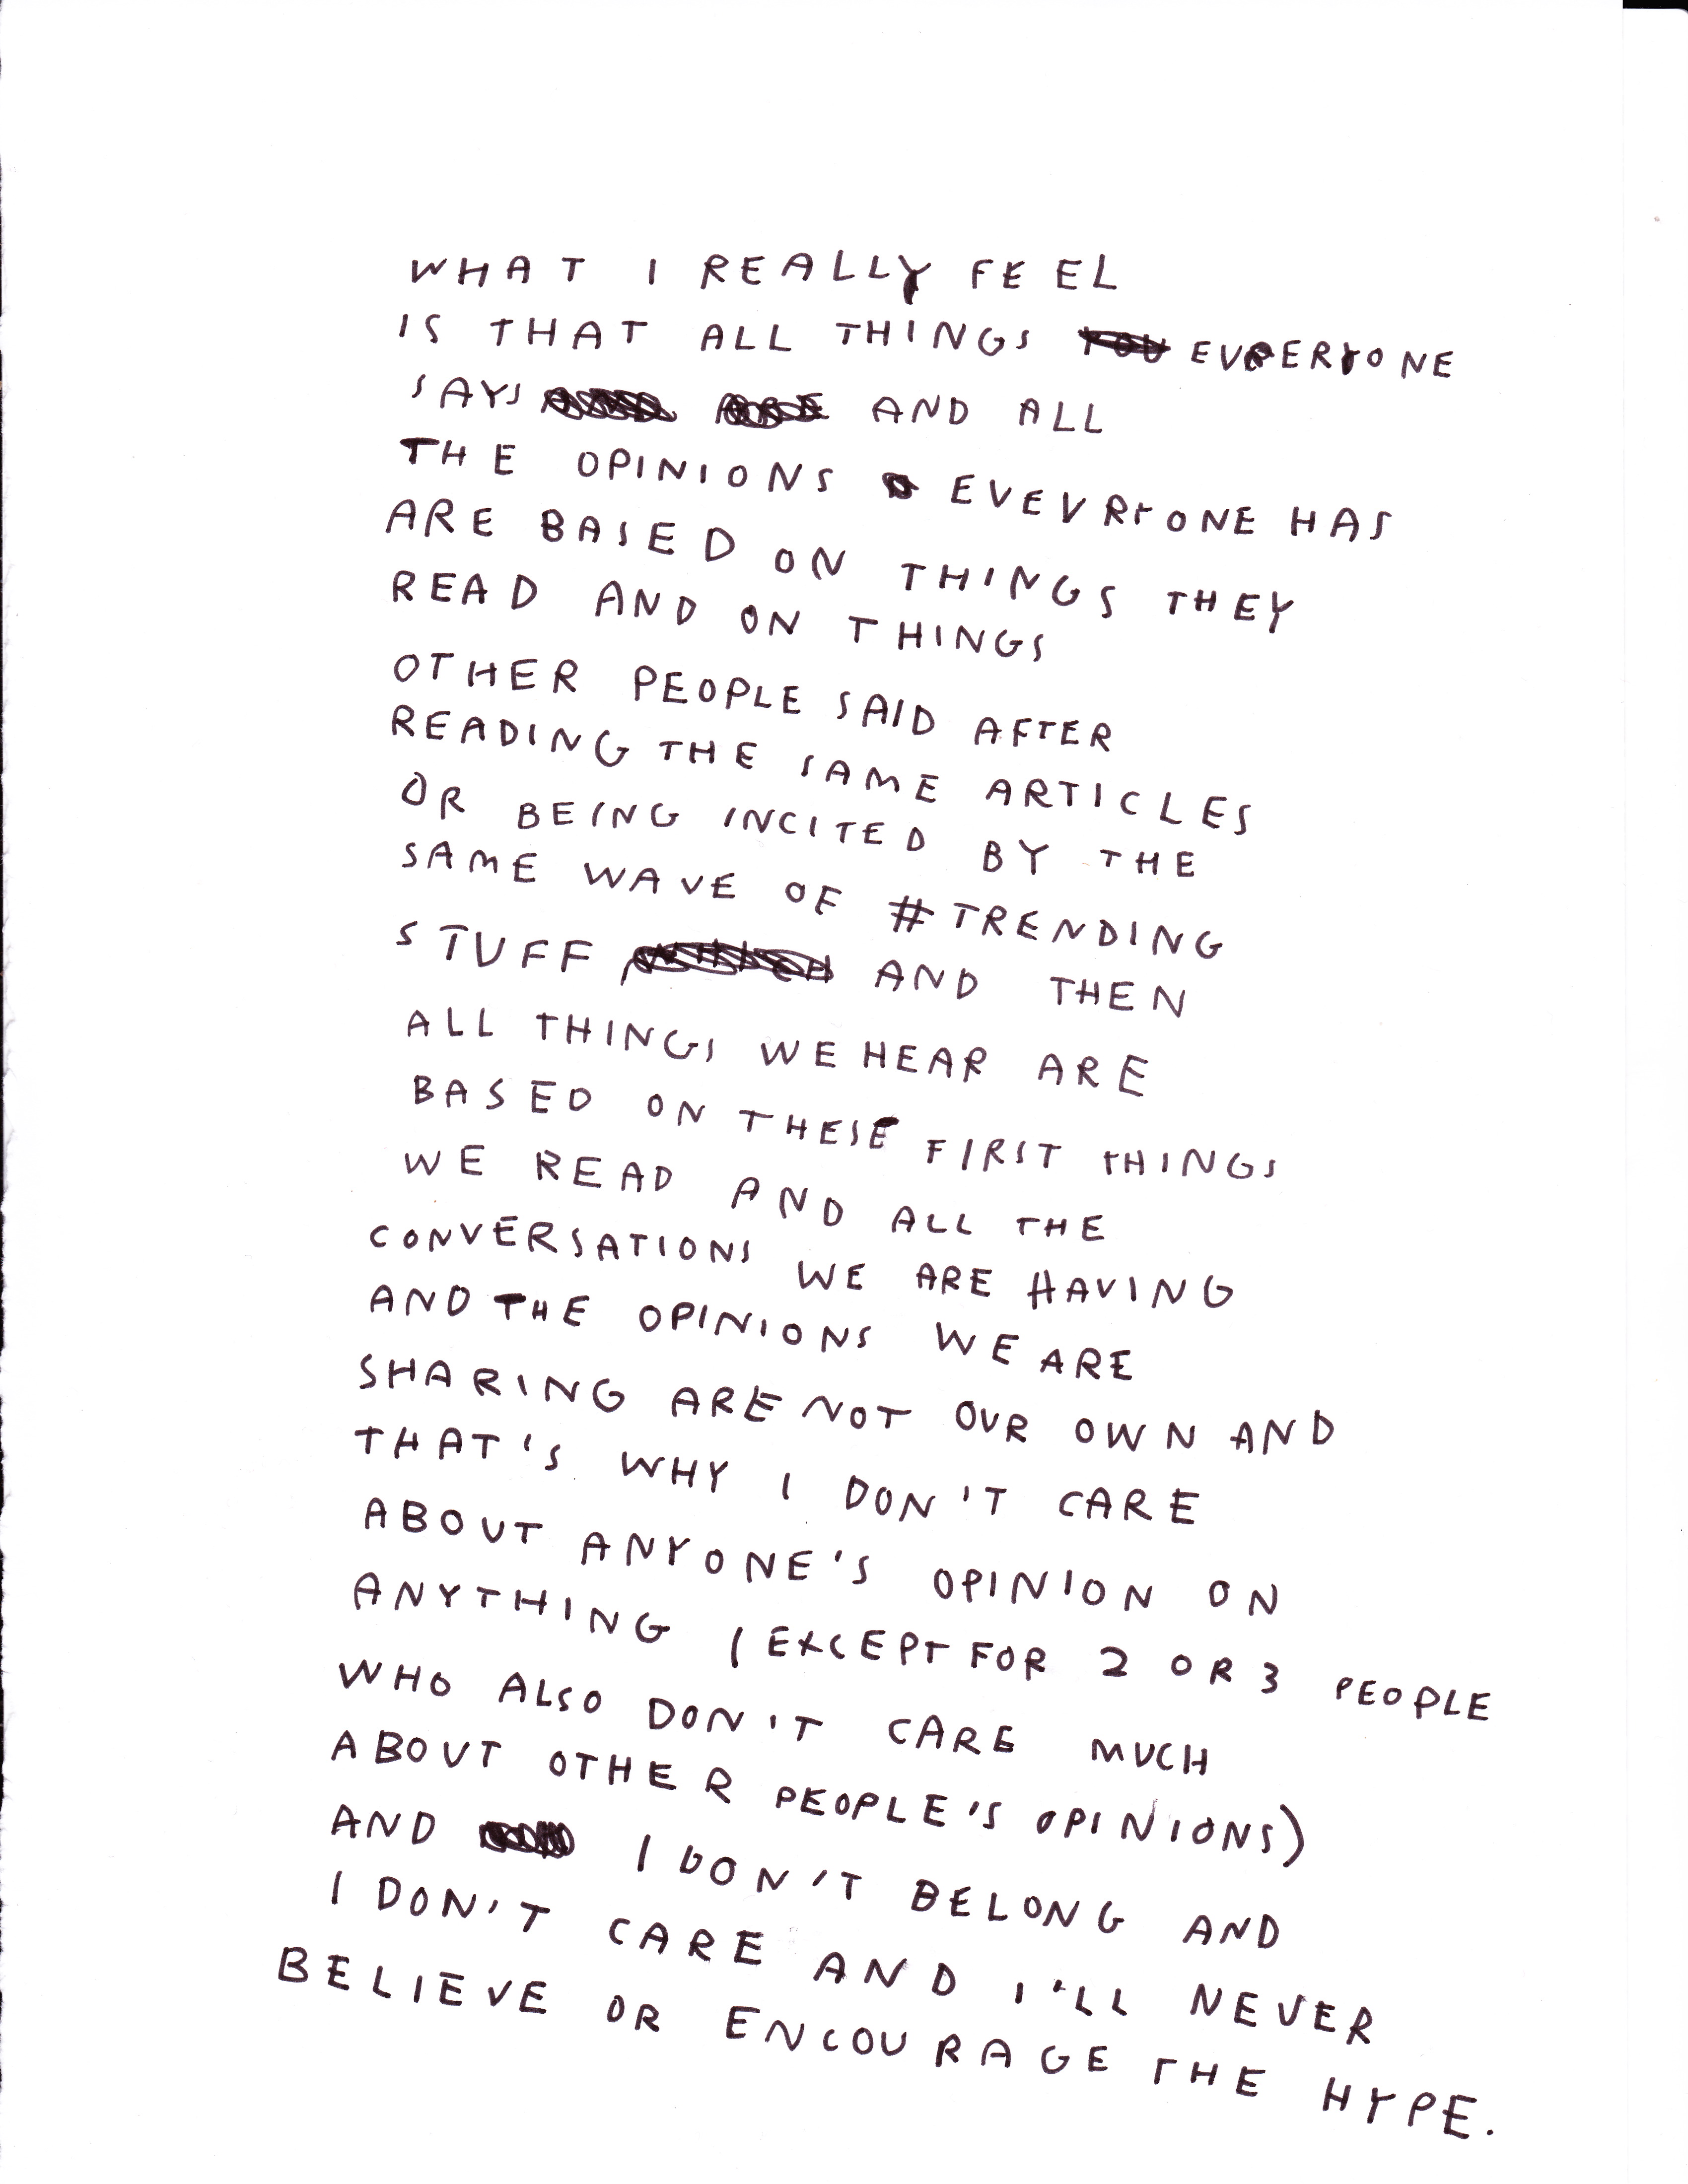 WHAT I REALLY FEEL
IS THAT ALL THINGS EVERYONE
SAYS AND ALL
THE OPINIONS EVEVRYONE HAS
ARE BASED ON THINGS THEY
READ AND ON THINGS
OTHER PEOPLE SAID AFTER
READING THE SAME ARTICLES
OR BEING INCITED BY THE
SAME WAVE OF #TRENDING
STUFF AND THEN
ALL THINGS WE HEAR ARE
BASED ON THESE FIRST THINGS
WE READ AND ALL THE
CONVERSATIONS WE ARE HAVING
AND THE OPINIONS WE ARE
SHARING ARE NOT OUR OWN AND
THAT'S WHY I DON'T CARE
ABOUT ANYONE'S OPINION ON
ANYTHING (EXCEPT FOR 2 OR 3 PEOPLE
WHO ALSO DON'T CARE MUCH
ABOUT OTHER PEOPLE'S OPINIONS)
AND I DON'T BELONG AND
I DON'T CARE AND I'LL NEVER
BELIEVE OR ENCOURAGE THE HYPE.